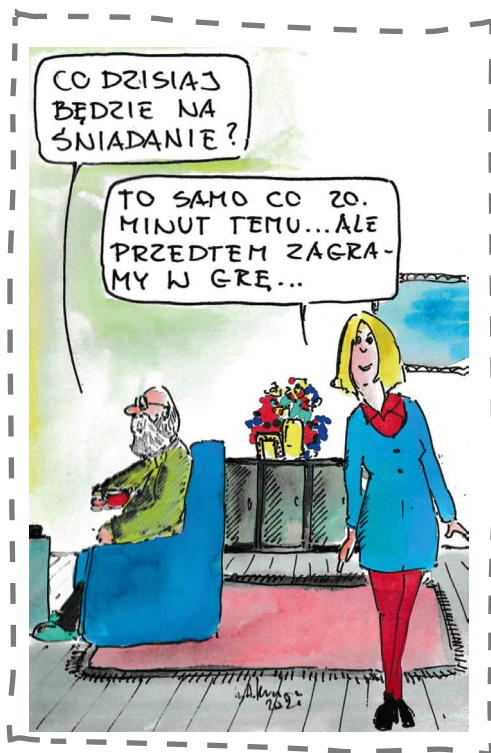 CO DZISIAJ
BĘDZIE NA
ŚNIADANIE?
TO SAMO CO 20.
MINUT TEMU...ALE
PRZEDTEM ZAGRA-
MY W GRĘ...